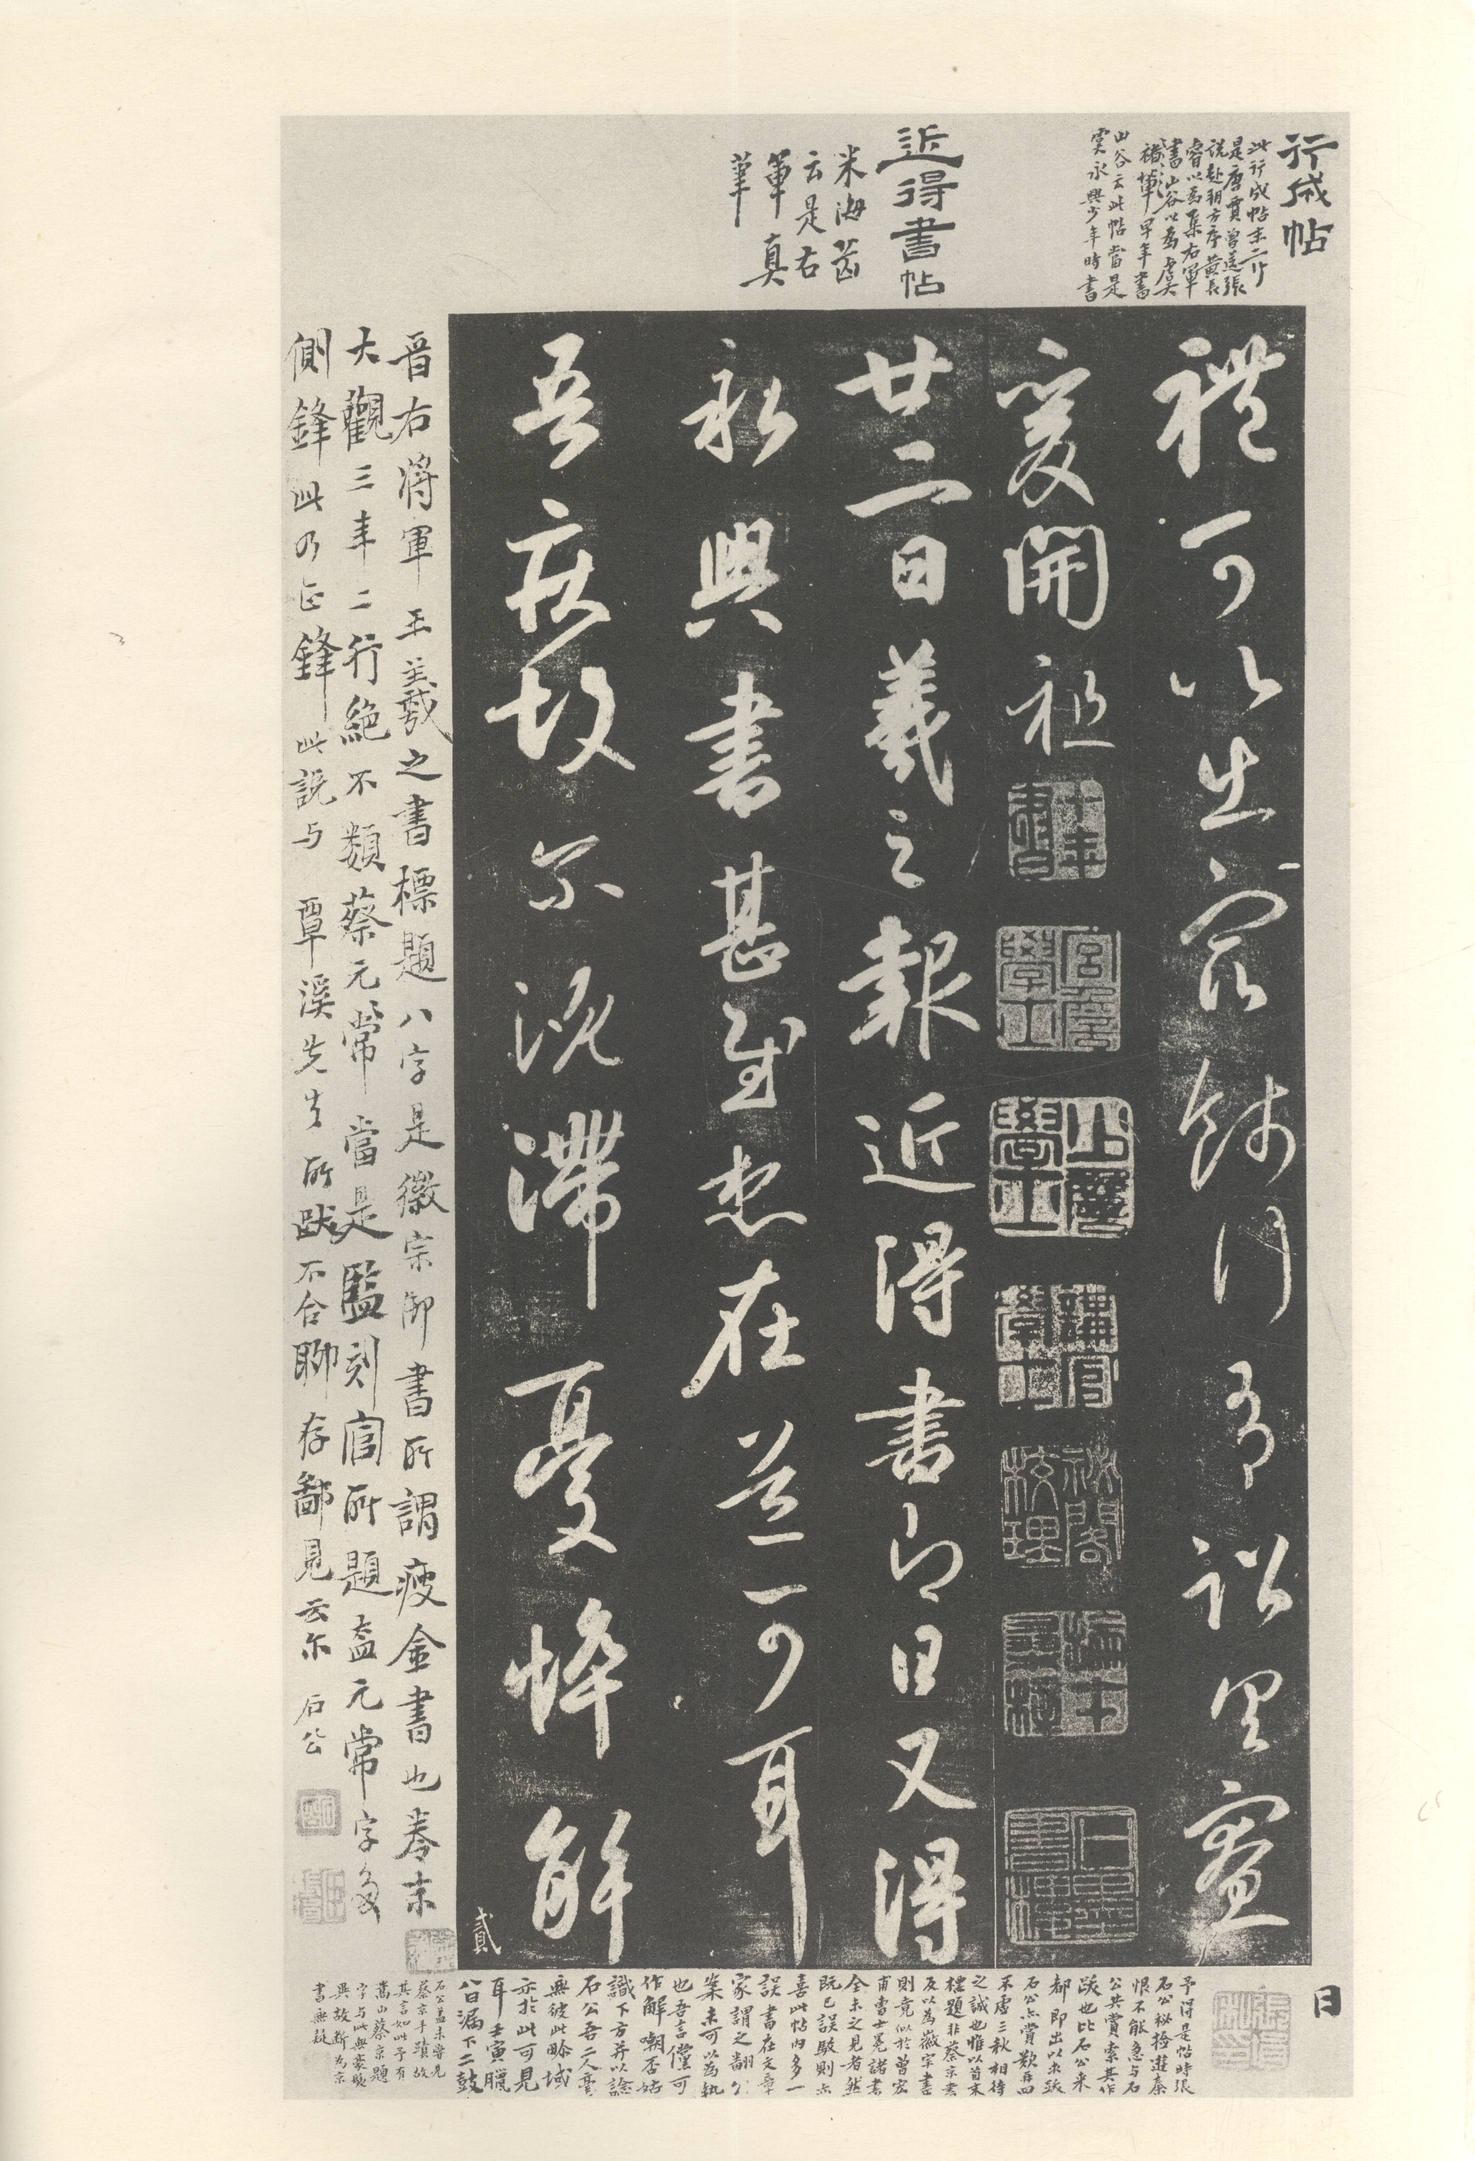 行成帖
此行成帖末二行
是唐賈曾送張
說赴朔方序黃長
睿以為集右軍
書山谷以為虞
褚輩早年書
山谷云此帖當是
虞永興少年時書
近得書帖
米海岳
云是右
軍真
筆
禮可以生定餞行有詔具宴
爰開祖
廿二日羲之報近得書即日又得
永興書甚慰想在道可耳
吾疾故爾沉滯憂悴解
貳
晉右將軍王羲之書標題八字是徽宗御書所謂瘦金書也卷末
大觀三年二行絕不類蔡元常當是監刻官所題蓋元常字多
側鋒此乃正鋒此說與覃溪先生所跋不合聊存鄙見云尔 石公
日
予得是帖時張
石公秘檢進秦
恨不能急與石
公共賞索其作
跋也比石公來
都即出以求跋
石公亦賞歎再四
不虛三秋相待
之誠也惟以首末
標題非蔡京書
及以為徽宗書
則竟似於曾宏
甫曹士冕諸書
全未之見者然
既已誤駁則亦
喜此帖內多一
誤書在文章
家謂之翻公
案未可以為執
也吾言儻可
作解嘲否姑
識下方并以諗
石公吾二人毫
無彼此畛域
亦於此可見
耳壬寅臘
八日漏下二鼓
石公蓋未嘗見
蔡京手蹟故
其言如此予有
嵩山蔡京題
字與此無豪髮
異故斷為京
書無疑